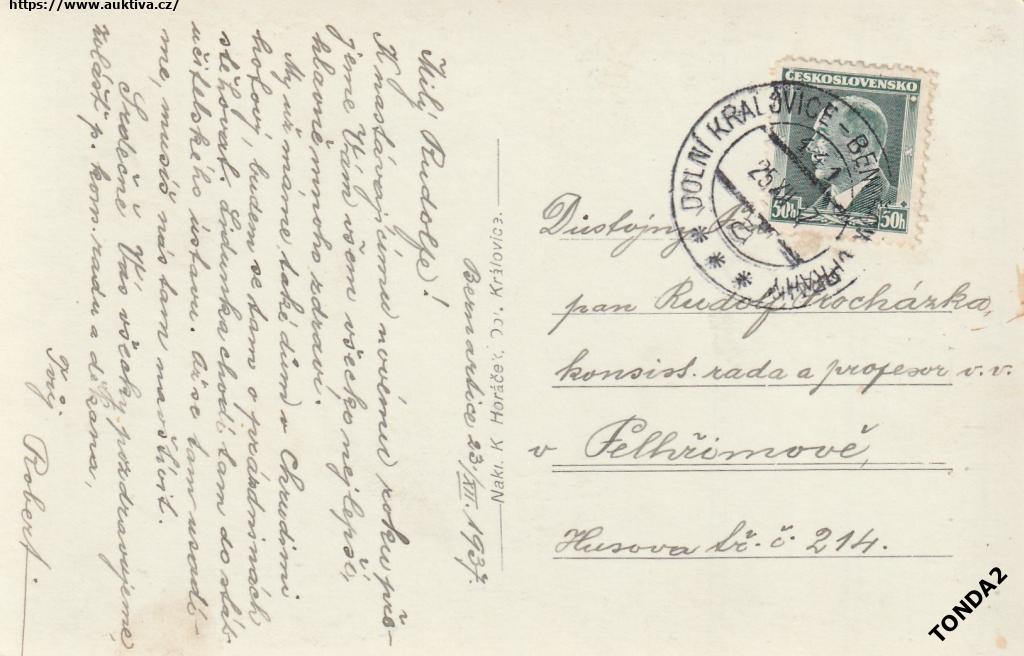 https://www.auktiva.cz/
Bernartice 23/XII. 1937.
Milý Rudolfe!
K nastávajícímu novému roku pře-
jeme Vám všem všecko nejlepší,
hlavně mnoho zdraví.
My už máme také dům v Chrudimi
hotový, budem se tam o prázdninách
stěhovat. Zdunka chodí tam do
učitelského ústavu. Až se tam usadí-
me, musíš nás tam navštívit.
Srdečně Vás všecky pozdravujeme,
zvlášť p. kons. radu a děkana,
Tvůj
Robert.
Nakl. K Horáček, Dol. Královice.
ČESKOSLOVENSKO
50h 50h
DOLNÍ KRALOVICE - BEN U PRAHY
25. XII. 37
Důstojný
pan Rudolf Procházka,
konsist. rada a profesor v. v.
v Pelhřimově,
Husova tř. č. 214.
TONDA2